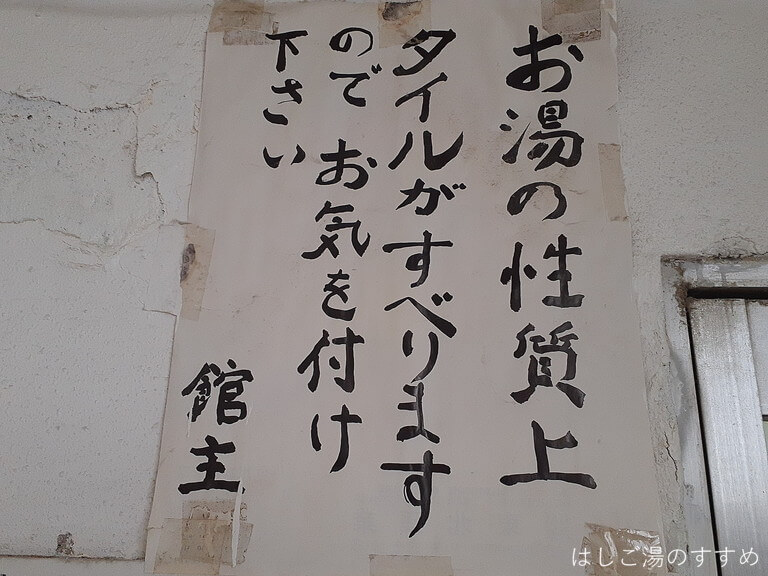 お湯の性質上
タイルがすべります
ので お気を付け
下さい
館主
はしご湯のすすめ